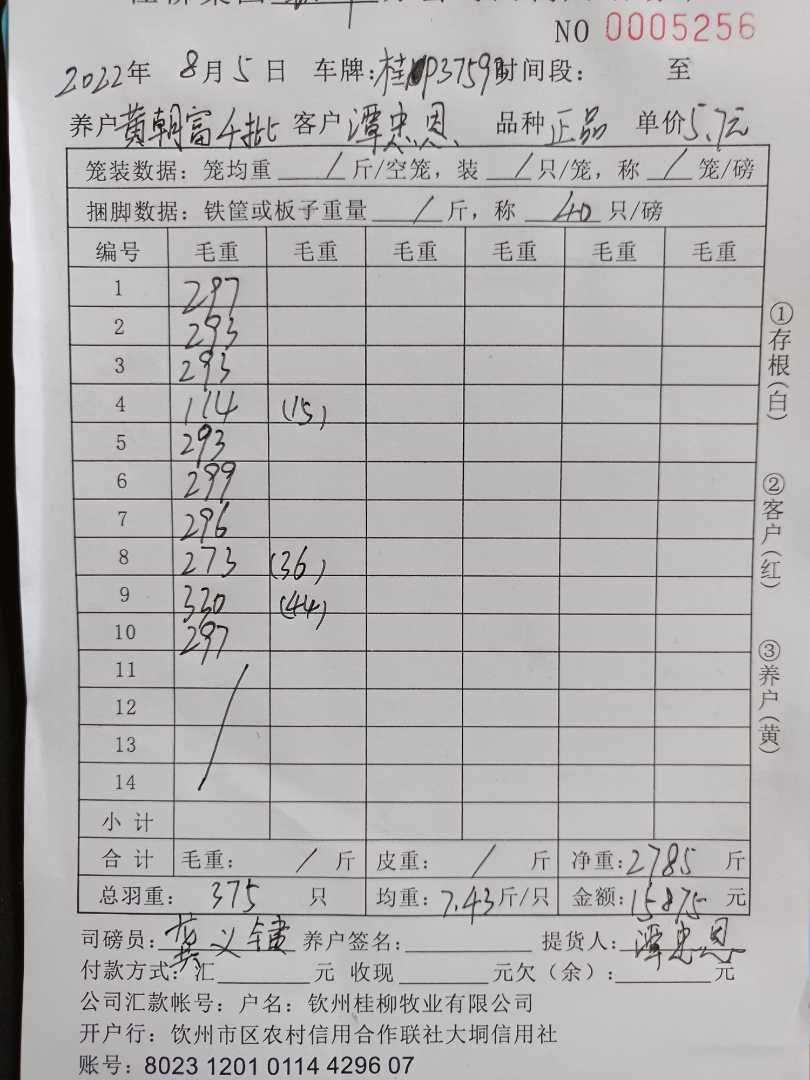 NO 0005256
2022年 8月5日 车牌:桂P37597时间段: 至
养户黄朝富4批 客户潭忠恩 品种正品 单价5.7元
笼装数据: 笼均重 / 斤/空笼, 装 / 只/笼, 称 / 笼/磅
捆脚数据: 铁筐或板子重量 / 斤, 称 40 只/磅
编号 毛重 毛重 毛重 毛重 毛重 毛重
1 297
2 293
3 293
4 114 (15)
5 293
6 299
7 296
8 273 (36)
9 330 (44)
10 297
11
12
13
14
小计
合计 毛重: / 斤 皮重: / 斤 净重:2785 斤
总羽重: 375 只 均重:7.43斤/只 金额:15875元
司磅员: 养户签名: 提货人:潭忠恩
付款方式: 汇 元 收现 元欠(余): 元
公司汇款帐号: 户名: 钦州桂柳牧业有限公司
开户行: 钦州市区农村信用合作联社大垌信用社
账号: 8023 1201 0114 4296 07
①存根(白)
②客户(红)
③养户(黄)